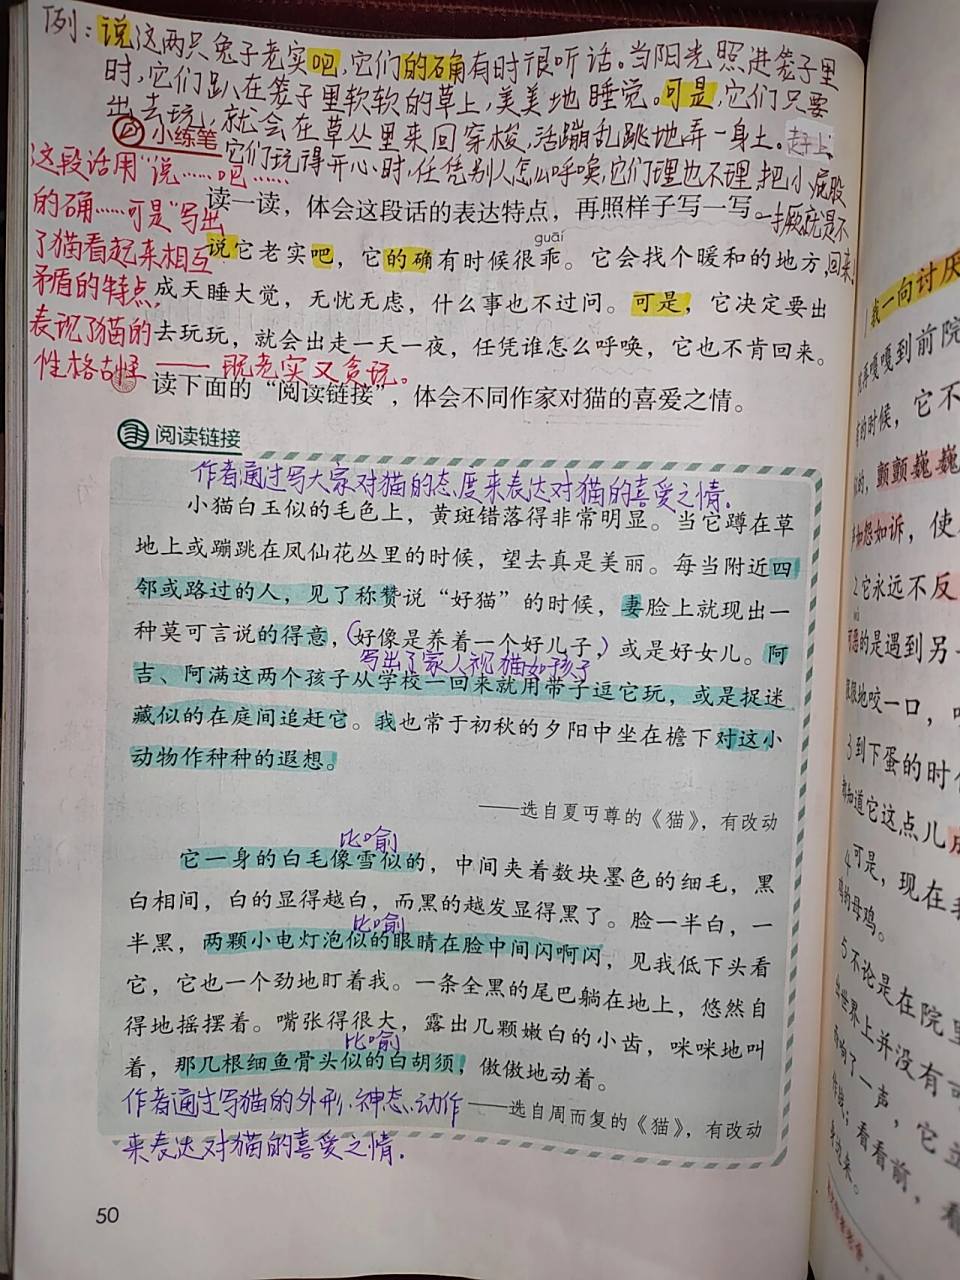 例：说这两只兔子老实吧，它们的确有时很听话。当阳光照进笼子里
时，它们趴在笼子里软软的草上，美美地睡觉。可是，它们只要
出去玩，就会在草丛里来回穿梭，活蹦乱跳地弄一身土。赶上
它们玩得开心时，任凭别人怎么呼唤，它们理也不理，把小屁股
一撅，就是不
回来！
小练笔
这段话用“说……吧……
的确……可是”写出
了猫看起来相互
矛盾的特点，
表现了猫的
性格古怪——既老实又贪玩。
读一读，体会这段话的表达特点，再照样子写一写。
guāi
说它老实吧，它的确有时候很乖。它会找个暖和的地方，
成天睡大觉，无忧无虑，什么事也不过问。可是，它决定要出
去玩玩，就会出走一天一夜，任凭谁怎么呼唤，它也不肯回来。
读下面的“阅读链接”，体会不同作家对猫的喜爱之情。
阅读链接
作者通过写大家对猫的态度来表达对猫的喜爱之情。
小猫白玉似的毛色上，黄斑错落得非常明显。当它蹲在草
地上或蹦跳在凤仙花丛里的时候，望去真是美丽。每当附近四
邻或路过的人，见了称赞说“好猫”的时候，妻脸上就现出一
种莫可言说的得意，（好像是养着一个好儿子，）或是好女儿。阿
写出了家人视猫如孩子
吉、阿满这两个孩子从学校一回来就用带子逗它玩，或是捉迷
藏似的在庭间追赶它。我也常于初秋的夕阳中坐在檐下对这小
动物作种种的遐想。
——选自夏丏尊的《猫》，有改动
比喻
它一身的白毛像雪似的，中间夹着数块墨色的细毛，黑
白相间，白的显得越白，而黑的越发显得黑了。脸一半白，一
比喻
半黑，两颗小电灯泡似的眼睛在脸中间闪啊闪，见我低下头看
它，它也一个劲地盯着我。一条全黑的尾巴躺在地上，悠然自
得地摇摆着。嘴张得很大，露出几颗嫩白的小齿，咪咪地叫
比喻
着，那几根细鱼骨头似的白胡须，傲傲地动着。
作者通过写猫的外形、神态、动作
——选自周而复的《猫》，有改动
来表达对猫的喜爱之情。
50
我一向讨厌
嘎嘎到前院
的时候，它不
颤颤巍巍
如怨如诉，使
2 它永远不反
的是遇到另一
狠狠地咬一口，
3 到下蛋的时
知道它这点儿成
4 可是，现在我
的母鸡。
5 不论是在院里
世界上并没有可
响了一声，它
看看前，看
身边来。